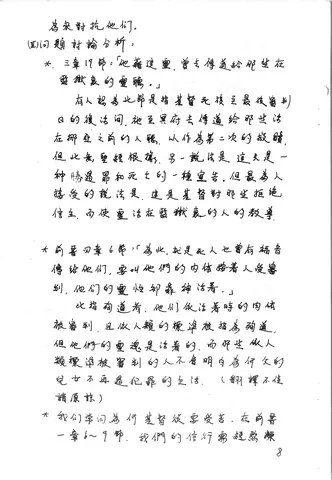 為來對抗他們。
(四)問題討論分析：
*. 三章19節：「他藉這靈，曾去傳道給那些在
監獄裏的靈聽。」
有人認為此節是指基督死後至最後審判
日的復活間，祂至冥府去傳道給那些活
在挪亞之前的人聽，以作為第二次的救贖，
但此無聖經根據。另一說法是這只是一
種勝過罪和死亡的一種宣告。但最為人
接受的說法是，這是基督對那些拒絕
信主，而使靈活在監獄裏的人的教導
* 前書四章6節：「為此，就是死人也曾有福音
傳給他們，要叫他們的肉體按著人受審
判，他們的靈性卻靠神活著。」
此指殉道者，他們依活著時的肉体
被審判，且依人類的標準被指為殉道，
但他們的靈魂是活著的，而那些依人
類標準被審判的人不會明白為何父的
兒女不再過犯罪的生活。（翻譯不佳
請原諒）
* 我們常問為何基督徒要受苦，在前書
一章6～9節，我們的信行需經熬煉
8